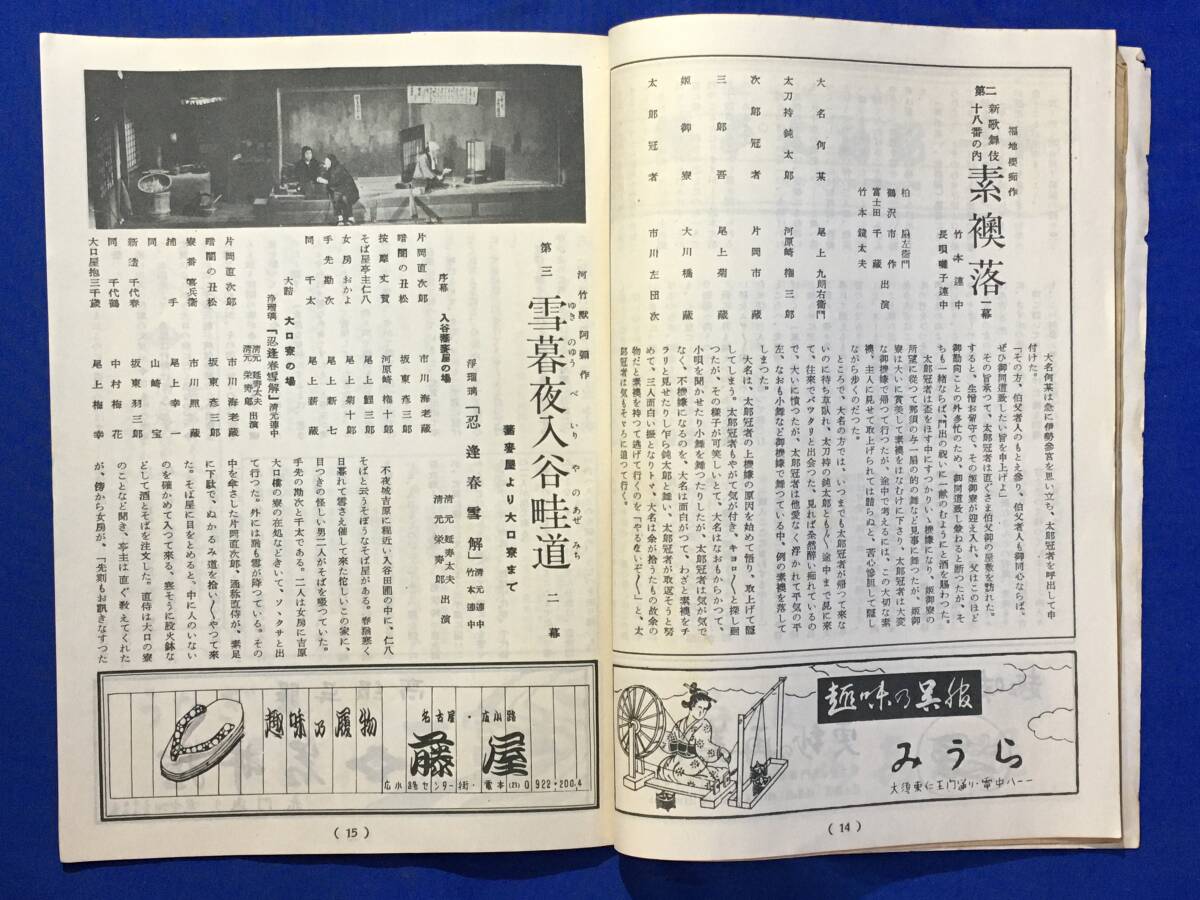 福地櫻痴作
第二 新歌舞伎十八番の内 素襖落 一幕
竹本連中
長唄囃子連中
柏扇左衛門
鶴沢市作
富士田千蔵
竹本鏡太夫
出演
大名何某 尾上九朗右衛門
太刀持鈍太郎 河原崎権三郎
次郎冠者 片岡市蔵
三郎吾 尾上菊蔵
姫御寮 大川橋蔵
太郎冠者 市川左団次
大名何某は急に伊勢参宮を思い立ち、太郎冠者を呼出して申
付けた。
「その方、伯父者人のもとえ参り、伯父者人も御同心ならば、
ぜひ御同道致したい旨を申上げよ」
その旨承つて、太郎冠者は直ぐさま伯父御の屋敷を訪れた。
すると、生憎お留守で、その姫御寮が迎え入れ、父はこのほど
御勤向ことの外多忙のため、御同道致し兼ねると断つたが、そ
ちも一緒ならば、門出の祝いに一献のむようにと酒を賜わつた。
太郎冠者は盃をほす中にすつかりいゝ機嫌になり、姫御寮の
所望に従つて那須の与一扇の的の舞など見事に舞つたが、姫御
寮は大いに賞美して素襖をはなむけに下さり、太郎冠者は大変
な御機嫌で帰つて行つたが、途中で考えるには、この大切な素
襖、主人に見せて取上げられては詰らぬと、苦心惨胆して隠し
ながら歩くのだつた。
ところで、大名の方では、いつまでも太郎冠者が帰つて来な
いのに待ち草臥れ、太刀持の鈍太郎ともん〳〵途中まで見に来
て、往来でバツタリと出会つた。見れば余然酔い痴れているの
で、大いに憤つたが、太郎冠者は他愛なく浮かれて平気の平
左、なおも小舞など御機嫌で舞つている中、例の素襖を落して
しまつた。
大名は、太郎冠者が上機嫌の原因を始めて悟り、取上げて隠
してしまう。太郎冠者もやがて気が付き、キョロ〳〵と探し廻
つたが、その様子が可笑しいとて、大名はなおもからかつて、
小唄を聞かせたり小舞を舞つたりしたが、太郎冠者は気が気で
なく、不機嫌になるのを、大名は面白がつて、わざと素襖をチ
ラリと見せたりし乍ら鈍太郎と舞い、太郎冠者が取返そうと努
めて、三人面白い振となりトヾ、大名は余が拾うたもの故余の
物だと素襖を持つて逃げて行くのを「やるないぞ〳〵」と、太
郎冠者は気もそゞろに追つて行く。
趣味の呉服
みうら
大須東仁王門通り・電中八一一
(14)
河竹黙阿彌作
第三 雪暮夜入谷畦道 二幕
ゆきのゆうべいりやのあぜみち
蕎麦屋より大口寮まで
浄瑠璃「忍逢春雪解」
清元連中
竹本連中
清元延寿太夫
清元栄寿郎
出演
序幕 入谷蕎麦屋の場
片岡直次郎 市川海老蔵
暗闇の丑松 坂東彦三郎
按摩丈賀 河原崎権十郎
そば屋亭主仁八 尾上鯉三郎
女房おかよ 尾上菊十郎
手先勘次 尾上新七
同千太 尾上新蔵
大詰 大口寮の場
浄瑠璃「忍逢春雪解」清元連中
清元延寿太夫
清元栄寿郎
出演
片岡直次郎 市川海老蔵
暗闇の丑松 坂東彦三郎
寮番喜兵衛 市川照蔵
捕手 尾上幸一
同 山崎宝
新造千代春 坂東羽三郎
同千代鶴 中村梅花
大口屋抱三千歳 尾上梅幸
不夜城吉原に程近い入谷田圃の中に、仁八
そばと云うそぼうなそば屋がある。春尚寒く
日暮れて雪さえ催して来た佗しいこの家に、
目つきの怪しい男二人がそばを啜つていた。
手先の勘次と千太である。二人は女房に吉原
大口楼の寮の在処などきいて、ソゝクサと出
て行つた。外には尚も雪が降つている。その
中を傘さした片岡直次郎、通称直侍が、素足
に下駄で、ぬかるみ道を拾い〳〵やつて来
た。そば屋に目をとめると、中に人のいない
のを確かめて入つて来る。寒そうに股火鉢な
どして酒とそばを注文した。直侍は大口の寮
のことなど聞き、亭主は直ぐ教えてくれた
が、傍から女房が、「先刻もお訊きなすつた
趣味の履物
名古屋・広小路
藤屋
広小路センター街・電本(23)0922・2004
(15)